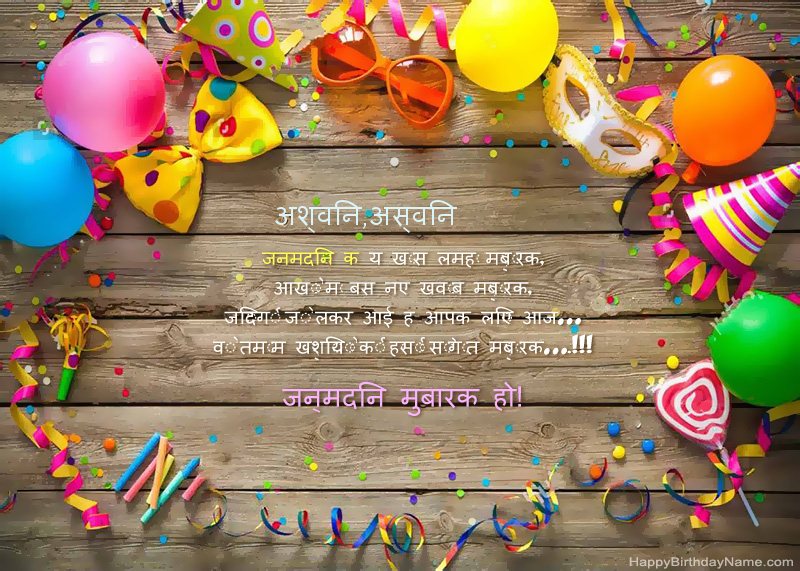 अश्वनि,अस्वनि
जनमदनि क य खास लमह मबारक,
आखोम बस नए खवाब मबारक,
जदिगी जोलेकर आई ह आपक लएि आज...
वोतमाम खशयिो की हसी सौगात मबारक...!!!
जन्मदनि मुबारक हो!
HappyBirthdayName.com